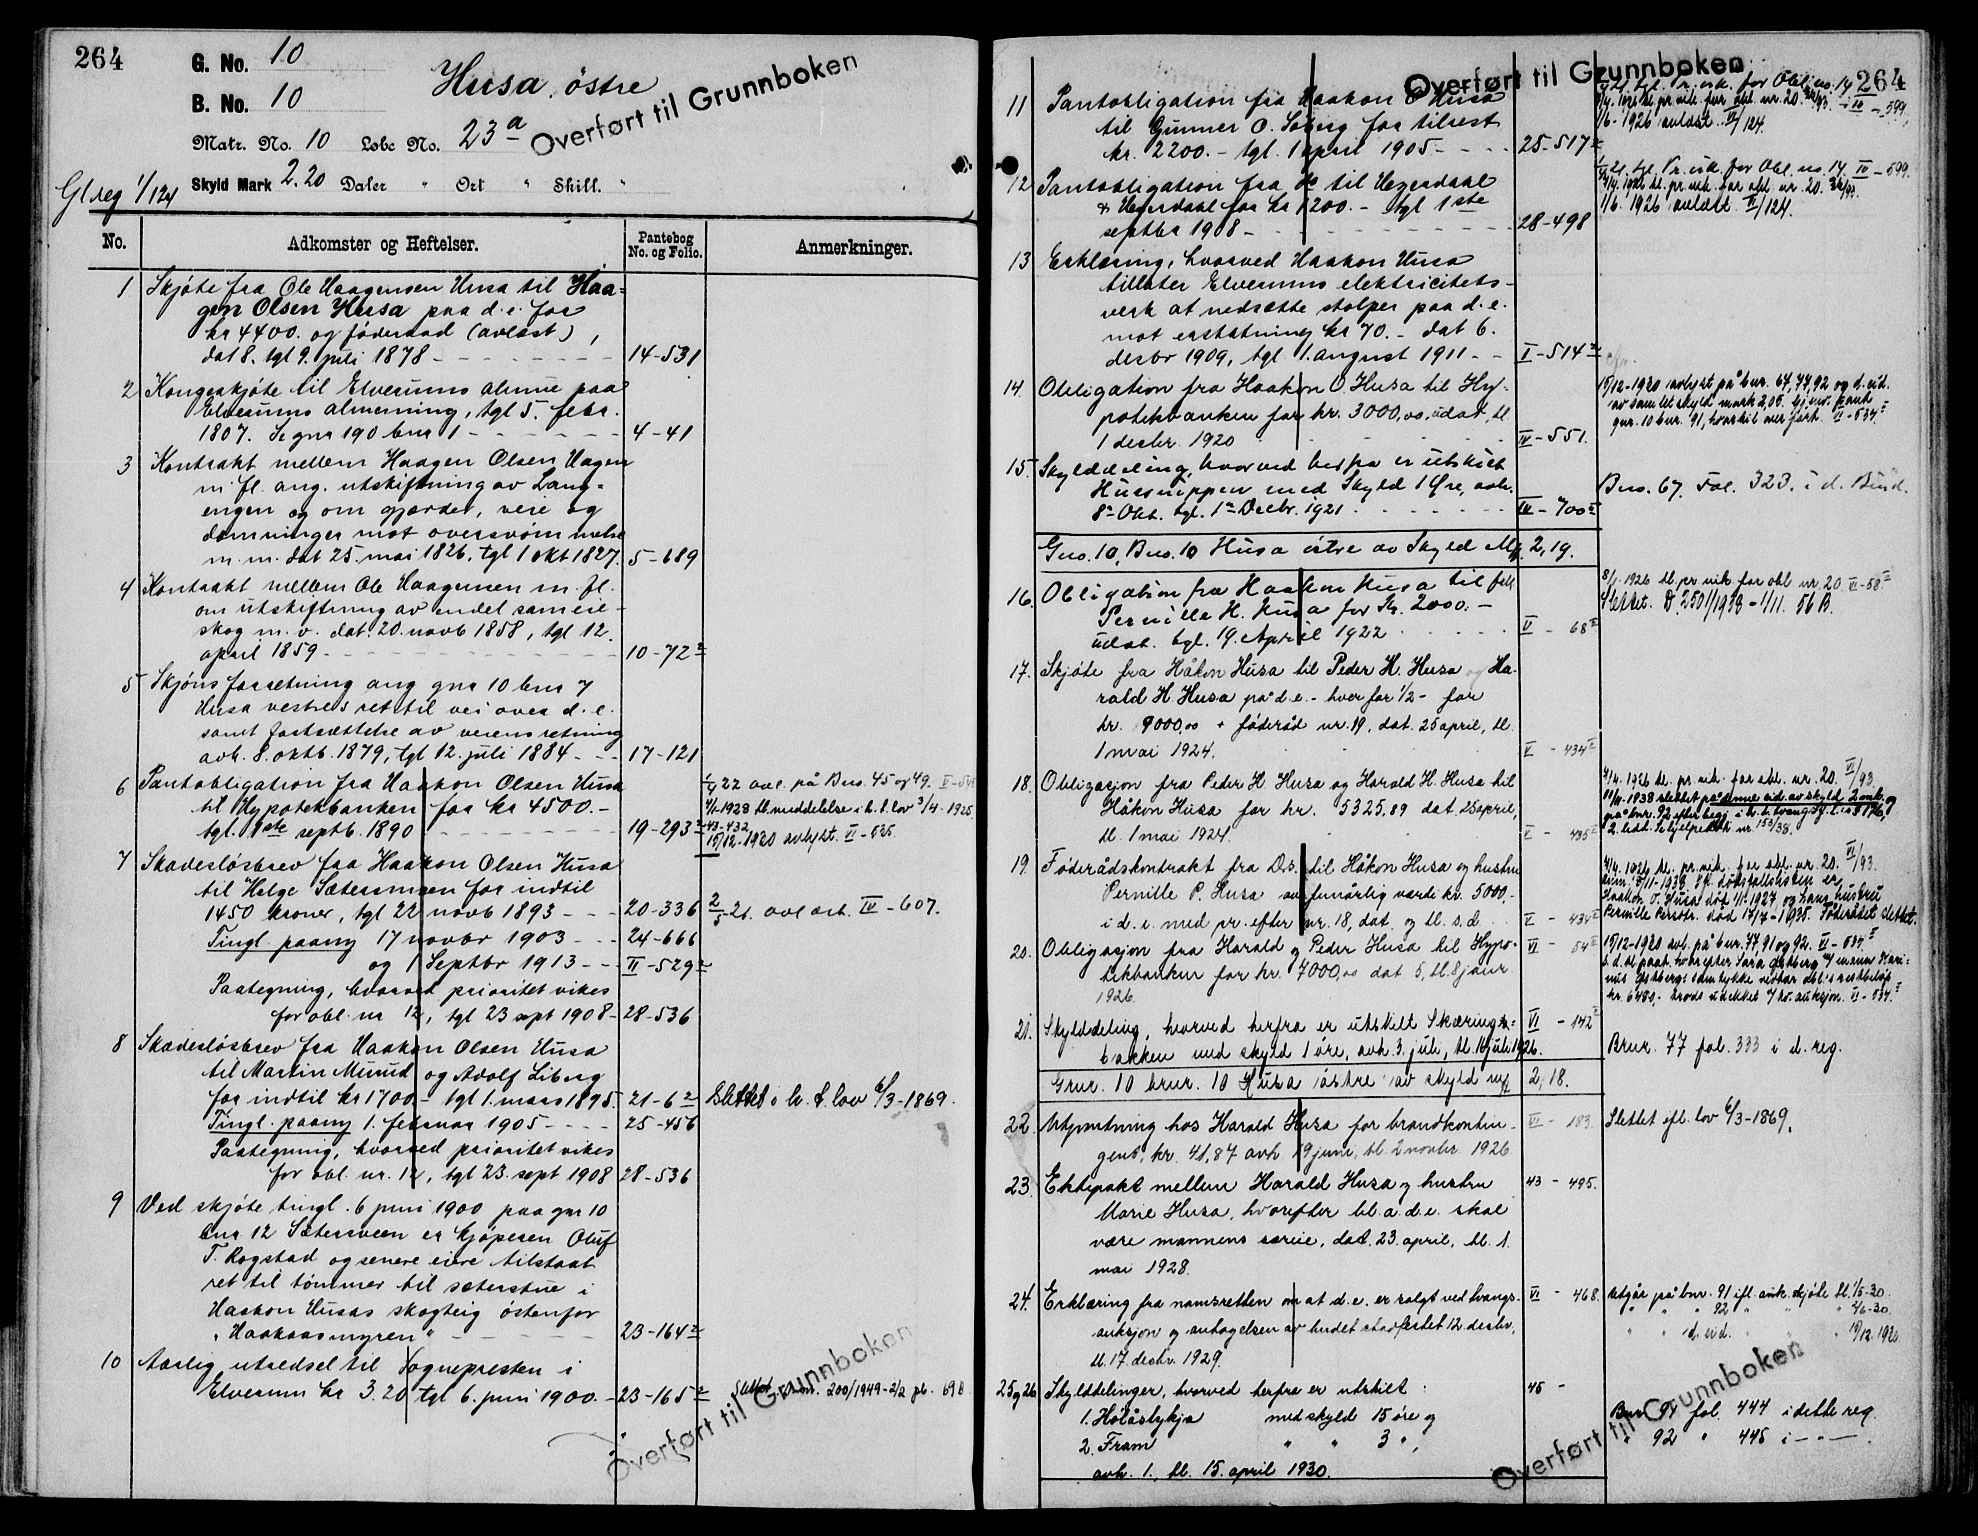 264
G. No. 10
B. No. 10
Husa, østre
Overført til Grunnboken
Matr. No. 10 Løbe No. 23a
Skyld Mark 2.20 Daler " Ort " Skill. "
Gl reg 1/124
No. Adkomster og Heftelser. Pantebog No. og Folio. Anmerkninger.
1 Skjøte fra Ole Haagensen Husa til Haa=
gen Olsen Husa paa d. e. for
kr 4400. og føderaad (avløst),
dat 8. tgl 9. juli 1878 - 14-531
2 Kongeskjøte til Elverums almue paa
Elverums almenning, tgl 5. febr.
1807. Se gnr 190 bnr 1 - 4-41
3 Kontrakt mellem Haagen Olsen Hagen
m. fl. ang. utskiftning av Lang=
engen og om gjærder, veie og
dæmninger mot oversvømmelse
m. m. dat 25. mai 1826, tgl 1 okt 1827. 5-689
4 Kontrakt mellem Ole Haagensen m. fl.
om utskiftning av endel sameie-
skog m. v. dat. 20. novb 1858, tgl 12.
april 1859 - 10-72
5 Skjønsforretning ang gnr 10 bnr 7
Husa vestres ret til vei over d. e.
samt fastsættelse av veiens retning
avh. 8. oktb. 1879, tgl 12. juli 1884 - 17-121
6 Pantobligation fra Haakon Olsen Husa
til Hypotekbanken for kr 4500.-
tgl. 1ste septb. 1890 - 19-293
22 avl. på Bno. 45 og 49.
1928 tl. meddelelse i h. t. lov 3/4-1925
43-432
15/12-1920 avlyst. VI-535
7 Skadesløsbrev fra Haakon Olsen Husa
til Helge Sætersmoen for indtil
1450 kroner, tgl 22 novb 1893 - 20-336
21. avl. IV-607.
Tingl. paany 17 novbr 1903 - 24-666
og 1 Septbr 1913 - II-529
Paategning, hvorved prioritet vikes
for obl. nr 12, tgl 23 sept 1908 - 28-536
8 Skadesløsbrev fra Haakon Olsen Husa
til Martin Murud og Adolf Liberg
for indtil kr 1700 - tgl 1. mars 1895. 21-6
Slettet i h. t. lov 6/3-1869.
Tingl. paany 1. februar 1905 - 25-456
Paategning, hvorved prioritet vikes
for obl. nr. 12, tgl 23. sept 1908 28-536
9 Ved skjøte tingl. 6 juni 1900 paa gnr 10
bnr 12 Sætersveen er kjøperen Oluf
T. Rogstad og senere eiere tilstaat
ret til tømmer til sæterstue i
Haakon Husas skogteig østenfor
"Haakaasmyren" - 23-164
10 Aarlig utredsel til Sognepresten i
Elverum kr 3.20 tgl 6. juni 1900. - 23-165
Slettet 200/1949-2/2
Overført til Grunnboken
264
Overført til Grunnboken
11 Pantobligation fra Haakon O Husa
til Gunner O. Søberg for tilrest
kr. 2200.- tgl. 1 april 1905 - 25-517
tgl. Pr. vik. for Obl. no. 14 IV-599.
1926 tl. pr. vik. for obl. nr. 20.
1/6-1926 avløst. VI/124.
12 Pantobligation fra do til Hegerdahl
& Hegerdahl for kr 1200.- tgl 1ste
septbr 1908 - 28-498
tgl. Pr. vik. for Obl. no. 14. IV-599.
1926 tl. pr. vik. for obl. nr. 20.
1/6. 1926 avløst. VI/124.
13 Erklæring, hvorved Haakon Husa
tillater Elverums elektricitets-
verk at nedsætte stolper paa d. e.
mot erstatning kr 70.- dat 6.
desbr 1909, tgl 1. august 1911 - I-514
14. Obligation fra Haakon O. Husa til Hy-
potekbanken for kr. 3000,00, udat, tl.
1 desbr. 1920 IV-551.
15/12-1920 avlyst på bnr. 67, 77, 92 og d. eid.
av samlet skyld mark 2,05.
gnr. 10 bnr. 91, VI-534
15. Skylddeling, hvorved herfra er utskilt
Husmippen med Skyld 1 Øre, avh.
8de Okt. tgl. 1te Decbr. 1921. IV-700
Bno. 67. Fol. 323. i d. Bind.
Gno. 10, Bno. 10 Husa østre av Skyld Mk. 2,19.
16. Obligation fra Haakon Husa til
Pernille H. Husa for Kr. 2000.-
udat. tgl. 19. April 1922 V-68
1926 tl. pr. vik. for obl. nr 20 VI-58
Slettet. D. 2501/1938-1/11. 56 B.
17. Skjøte fra Håkon Husa til Peder H. Husa og Ha-
rald H. Husa på d. e. - hver for 1/2 - for
kr. 9000,00 + føderåd nr. 19, dat. 25 april, tl.
1 mai 1924. V-434
18. Obligasjon fra Peder H Husa og Harald H. Husa til
Håkon Husa for kr. 5325,89 dat. 25 april,
tl. 1 mai 1924. V-435
1926 tl. pr. vik. for obl. nr. 20. VI/93.
1938 slettet på denne eid. av skyld 2 mk. og
på bnr. 92 efter begj. i h. t. tvangsfl.
2. ledd. Se hjelpedok nr 153/38.
19. Føderådskontrakt fra Ds. til Håkon Husa og hustru
Pernille P. Husa av femårlig værdi kr. 5000,-
i d. e. med pr. efter nr. 18, dat. og tl. s. d. V-434
1926 tl. pr. vik. for obl. nr. 20. VI/93.
Haakon O. Husa død 1927 og hans hustru
Pernille Persdtr. død 17/7-1935. Føderådet slettet.
20. Obligasjon fra Harald og Peder Husa til Hypo-
tekbanken for kr. 7000,00 dat 5, tl. 8 januar
1926. VI-54
15/12-1920 avl. på bnr. 77, 91 og 92. VI-534
kr. 6480,-
21. Skylddeling, hvorved herfra er utskilt Skærings-
bakken med skyld 1 øre, avh. 3. juli, tl. 16 juli 1926. VI-142
Bnr. 77 fol. 333 i d. reg.
Gnr. 10 bnr. 10 Husa østre av skyld mk. 2,18.
22. Utpantning hos Harald Husa for brandkontin-
gent, kr. 41,87 avh. 19 juni, tl. 2 novbr. 1926 VI-183.
Slettet efl. lov 6/3-1869.
23. Ektepakt mellem Harald Husa og hustru
Marie Husa, hvorefter bl. a. d. e. skal
være mannens særeie, dat. 23. april, tl. 1.
mai 1928. 43-495.
24. Erklæring fra namsretten om at d. e. er solgt ved tvangs-
auksjon og antagelsen av budet stadfestet 12 desbr.,
tl. 17. desbr. 1929. VI-468.
Utgår på bnr. 91 ifl. auk. skjøte tl. 1/5-30.
" " " 92 " " " " 4/6-30
" " d. eid. " " " 15/12. 1920
25 og 26 Skylddelinger, hvorved herfra er utskilt: 45-
1. Holåslykja med skyld 15 øre og
2. Fram " " 3 ",
avh. 1., tl. 15. april 1930.
Bnr. 91 fol. 444 i dette reg.
" 92 " 445 i - " -
Overført til Grunnboken